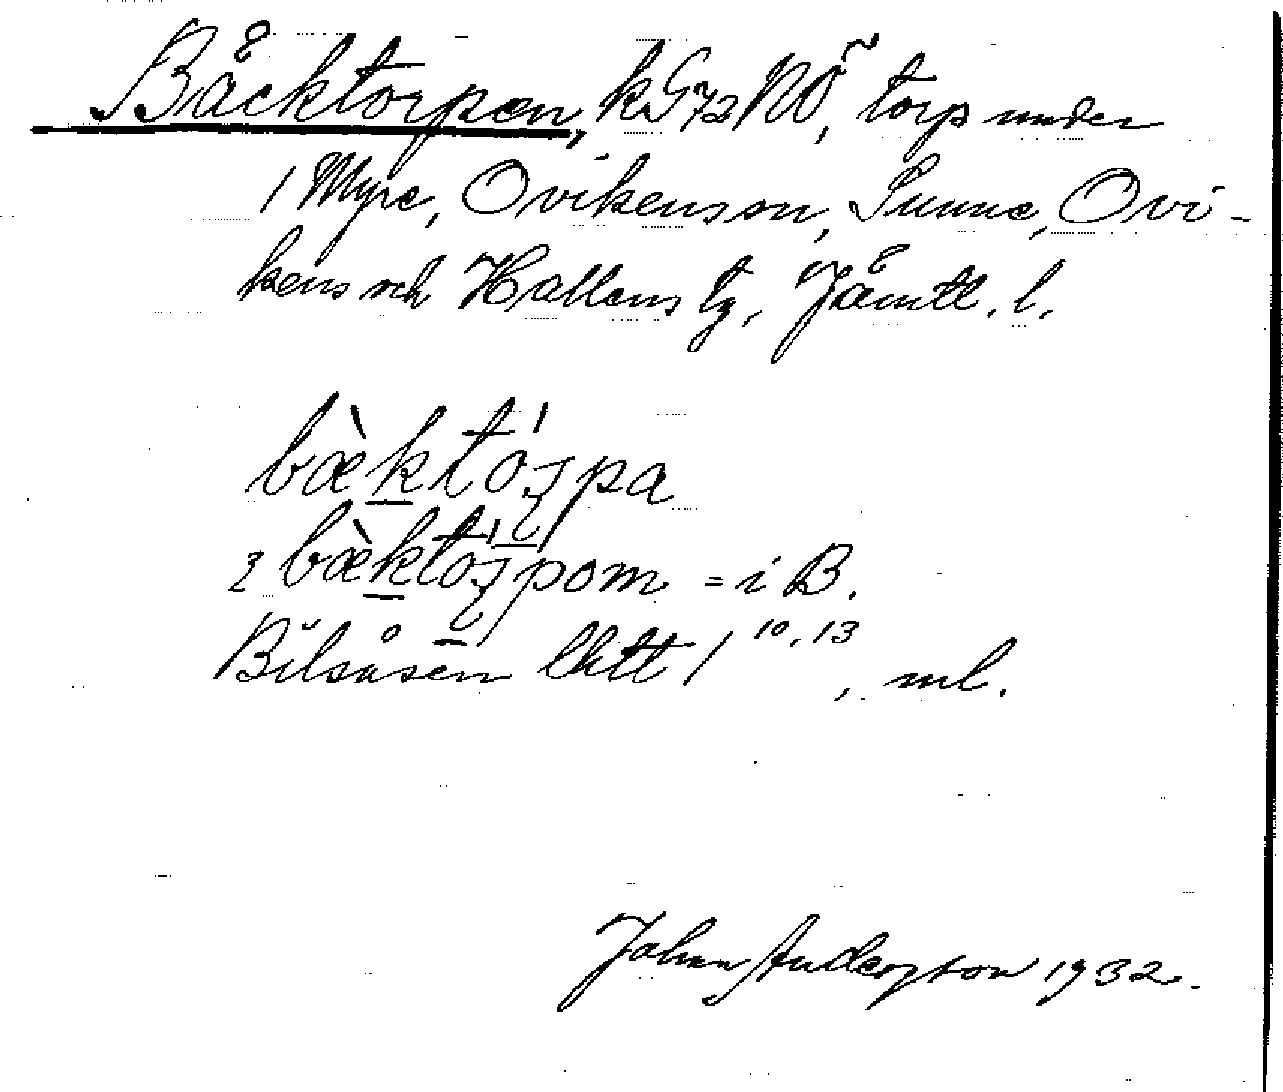 Bäcktorpen, k G72 NÖ, torp under
1 Myre, Ovikenson, Sunne, Ovi-
kens och Hallens tg, Jämtl. l.
bæ̀którpa
bæ̀którpom = i B.
Bilsåsen Chtt 1 10, 13, ml.
Johan Anderzson 1932.